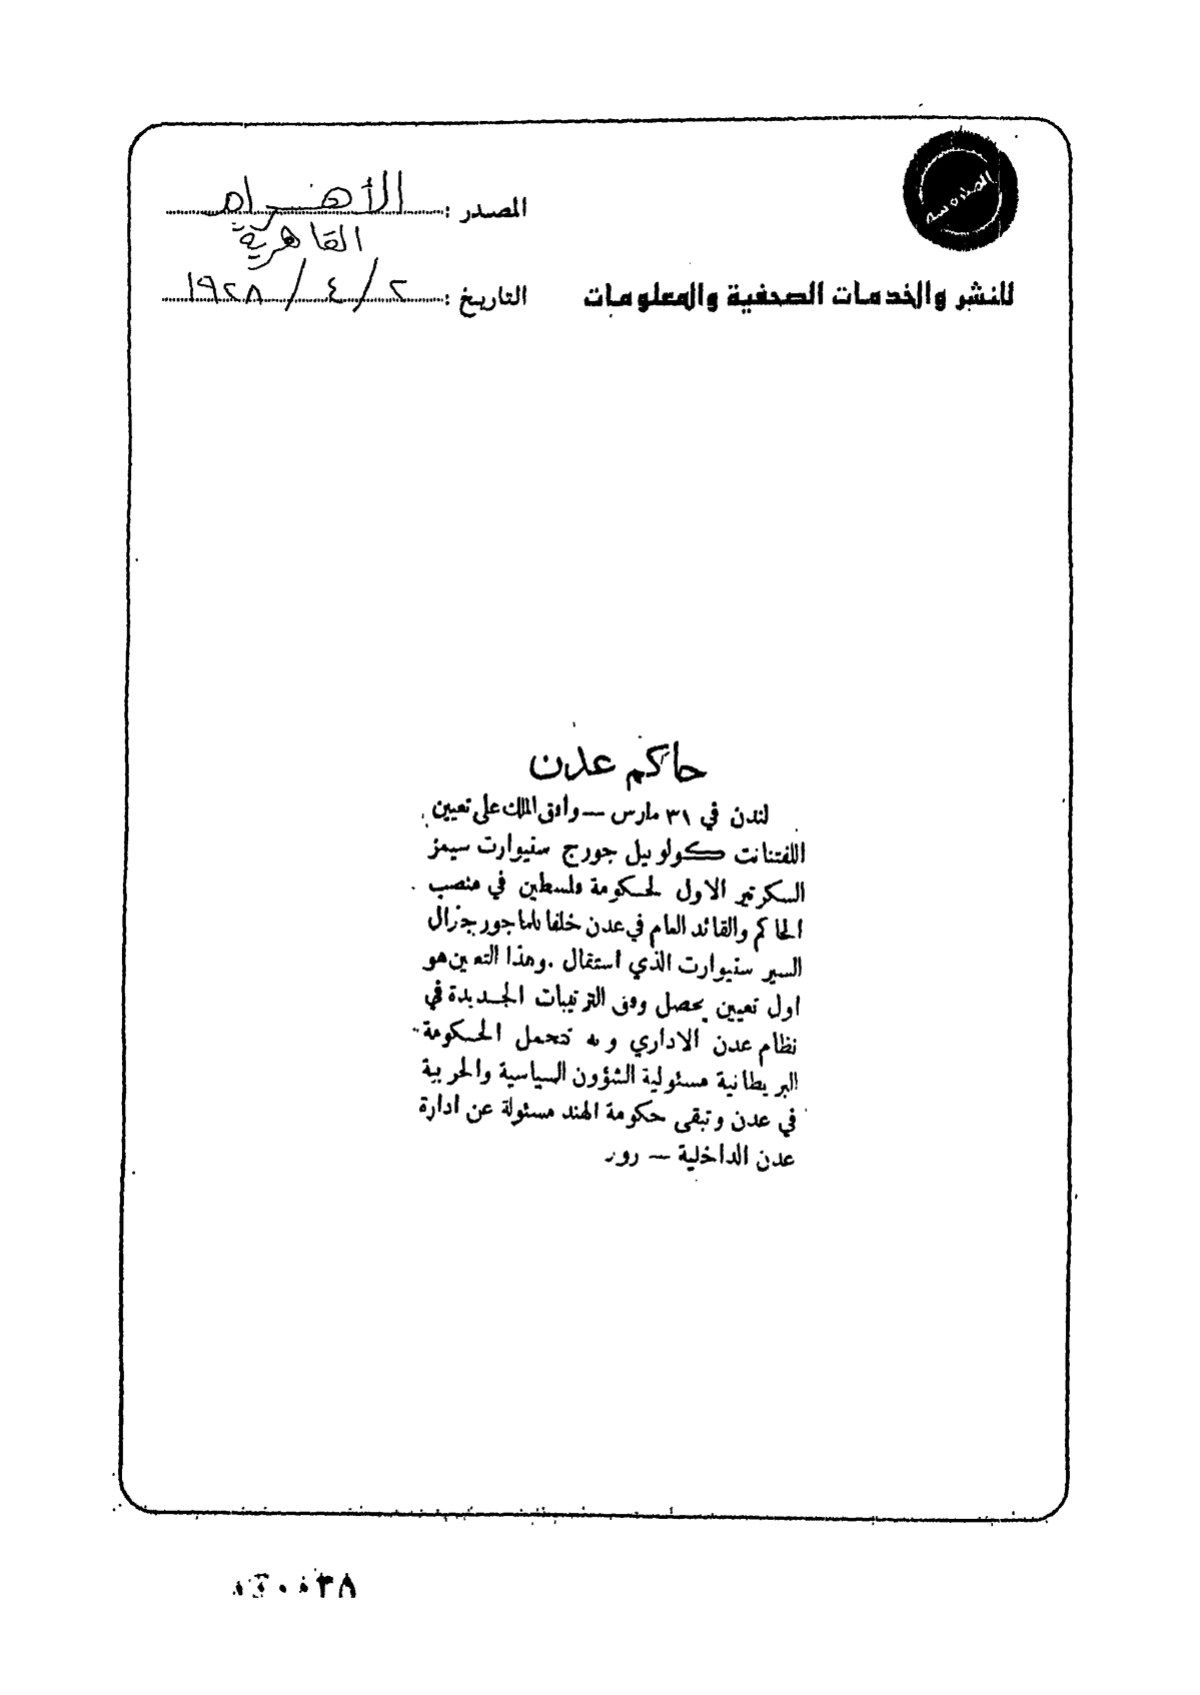 المصدر : الأهرام
القاهرية
للنشر والخدمات الصحفية والمعلومات
التاريخ : ٢ / ٤ / ١٩٢٨
حاكم عدن
لندن في ٣١ مارس — وافق الملك على تعيين
اللفتنانت كولونيل جورج ستيوارت سيمز
السكرتير الاول لحكومة فلسطين في منصب
الحاكم والقائد العام في عدن خلفا للماجور جنرال
السير ستيوارت الذي استقال . وهذا التعيين هو
اول تعيين يحصل وفق الترتيبات الجديدة في
نظام عدن الاداري وبه تتحمل الحكومة
البريطانية مسئولية الشؤون السياسية والحربية
في عدن وتبقى حكومة الهند مسئولة عن ادارة
عدن الداخلية — روتر